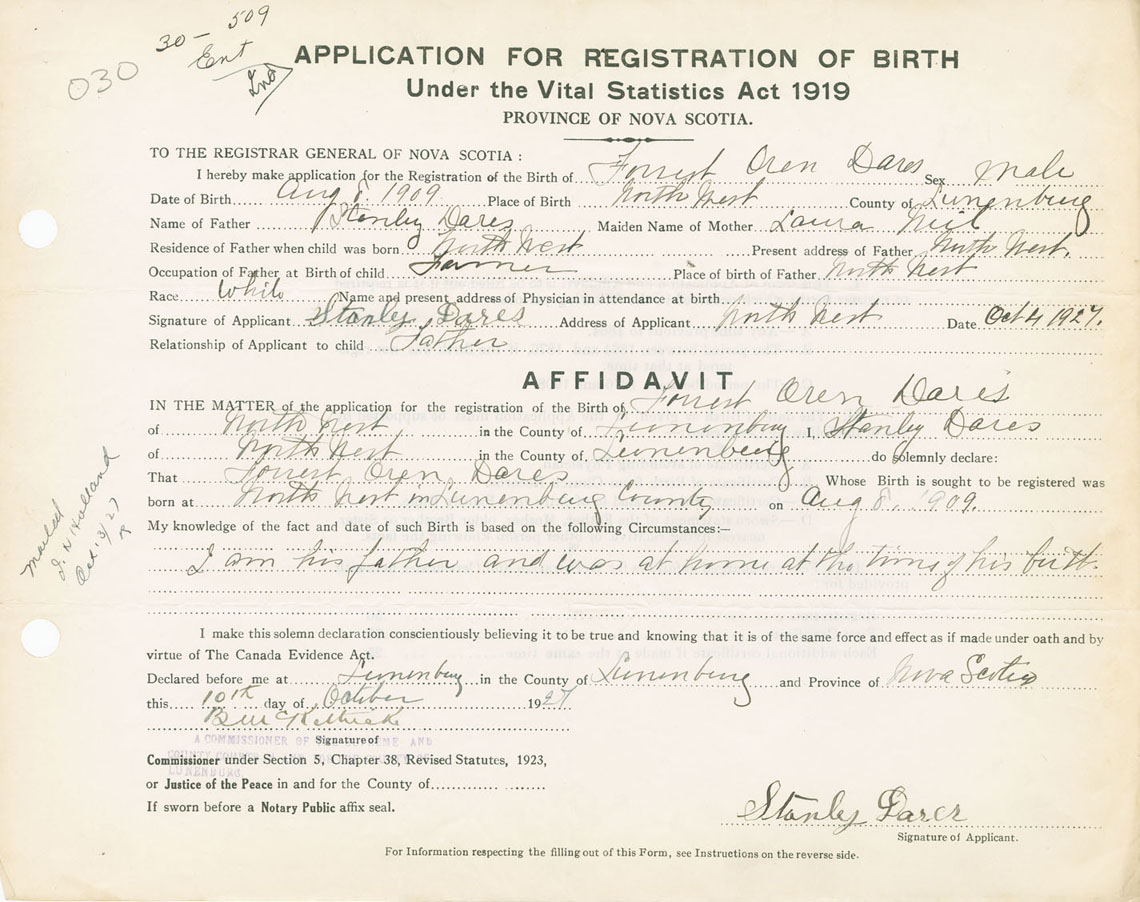 30 - 509
030 Ent
Ind
APPLICATION FOR REGISTRATION OF BIRTH
Under the Vital Statistics Act 1919
PROVINCE OF NOVA SCOTIA.
TO THE REGISTRAR GENERAL OF NOVA SCOTIA :
I hereby make application for the Registration of the Birth of Forrest Oren Dares Sex male
Date of Birth Aug 8. 1909 Place of Birth North West County of Lunenburg
Name of Father Stanley Dares Maiden Name of Mother Laura Neil
Residence of Father when child was born North West Present address of Father North West.
Occupation of Father at Birth of child Farmer Place of birth of Father North West
Race White Name and present address of Physician in attendance at birth
Signature of Applicant Stanley Dares Address of Applicant North West Date Oct 4 1927.
Relationship of Applicant to child Father
AFFIDAVIT
IN THE MATTER of the application for the registration of the Birth of Forrest Oren Dares
of North West in the County of Lunenburg I, Stanley Dares
of North West in the County of Lunenburg do solemnly declare:
That Forrest Oren Dares Whose Birth is sought to be registered was
born at North West in Lunenburg County on Aug 8. 1909.
My knowledge of the fact and date of such Birth is based on the following Circumstances:—
I am his father and was at home at the time of his birth.
I make this solemn declaration conscientiously believing it to be true and knowing that it is of the same force and effect as if made under oath and by
virtue of The Canada Evidence Act.
Declared before me at Lunenburg in the County of Lunenburg and Province of Nova Scotia
this 10th day of October 1927
A COMMISSIONER OF AND
Signature of
LUNENBURG
Commissioner under Section 5, Chapter 38, Revised Statutes, 1923,
or Justice of the Peace in and for the County of
If sworn before a Notary Public affix seal.
Stanley Dares
Signature of Applicant.
For Information respecting the filling out of this Form, see Instructions on the reverse side.
mailed
Holland
Oct 13/27